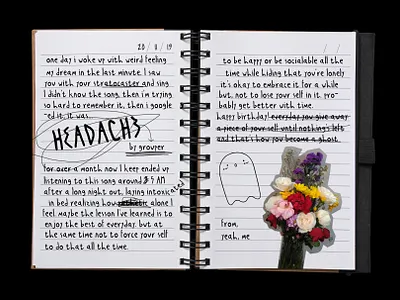 20 / 11 / 19
one day i woke up with weird feeling
my dream in the last minute. I saw
you with your stratocaster and sing
I didn't know the song. then i'm trying
so hard to remember it. then i google
-ed it. it was
HEADACHE
by grouper
for over a month now I keep ended up
listening to this song around 5 AM
after a long night out. laying intoxicated
in bed realizing how pathetic alone I
feel. maybe the lesson I've learned is to
enjoy the best of everyday. but at
the same time not to force your self
to do that all the time.
/ /
to be happy or be socialable all the
time while hiding that you're lonely
it's okay to embrace it for a while
but, not to lose your self in it. pro-
bably get better with time.
happy birthday! everyday you give away
a piece of your self until nothing's left
and that's how you become a ghost.
from,
yeah, me